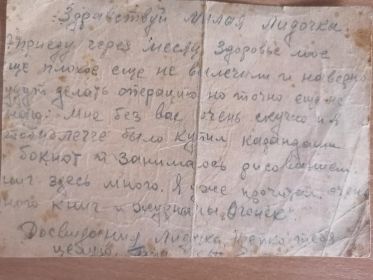 Здравствуй милая Лидочка.
Приеду через месяц. Здоровье мое
ще плохое еще не вылечили и наверно
будут делать операцию но точно еще не
наю. Мне без вас очень скучно и я
чтобы легче было купил карандаши
блокнот и занимаюсь рисованием
ниг здесь много. Я уже прочитал очень
много книг и журналы "Огонек".
Досвидания Лидочка, крепко тебя
целую.